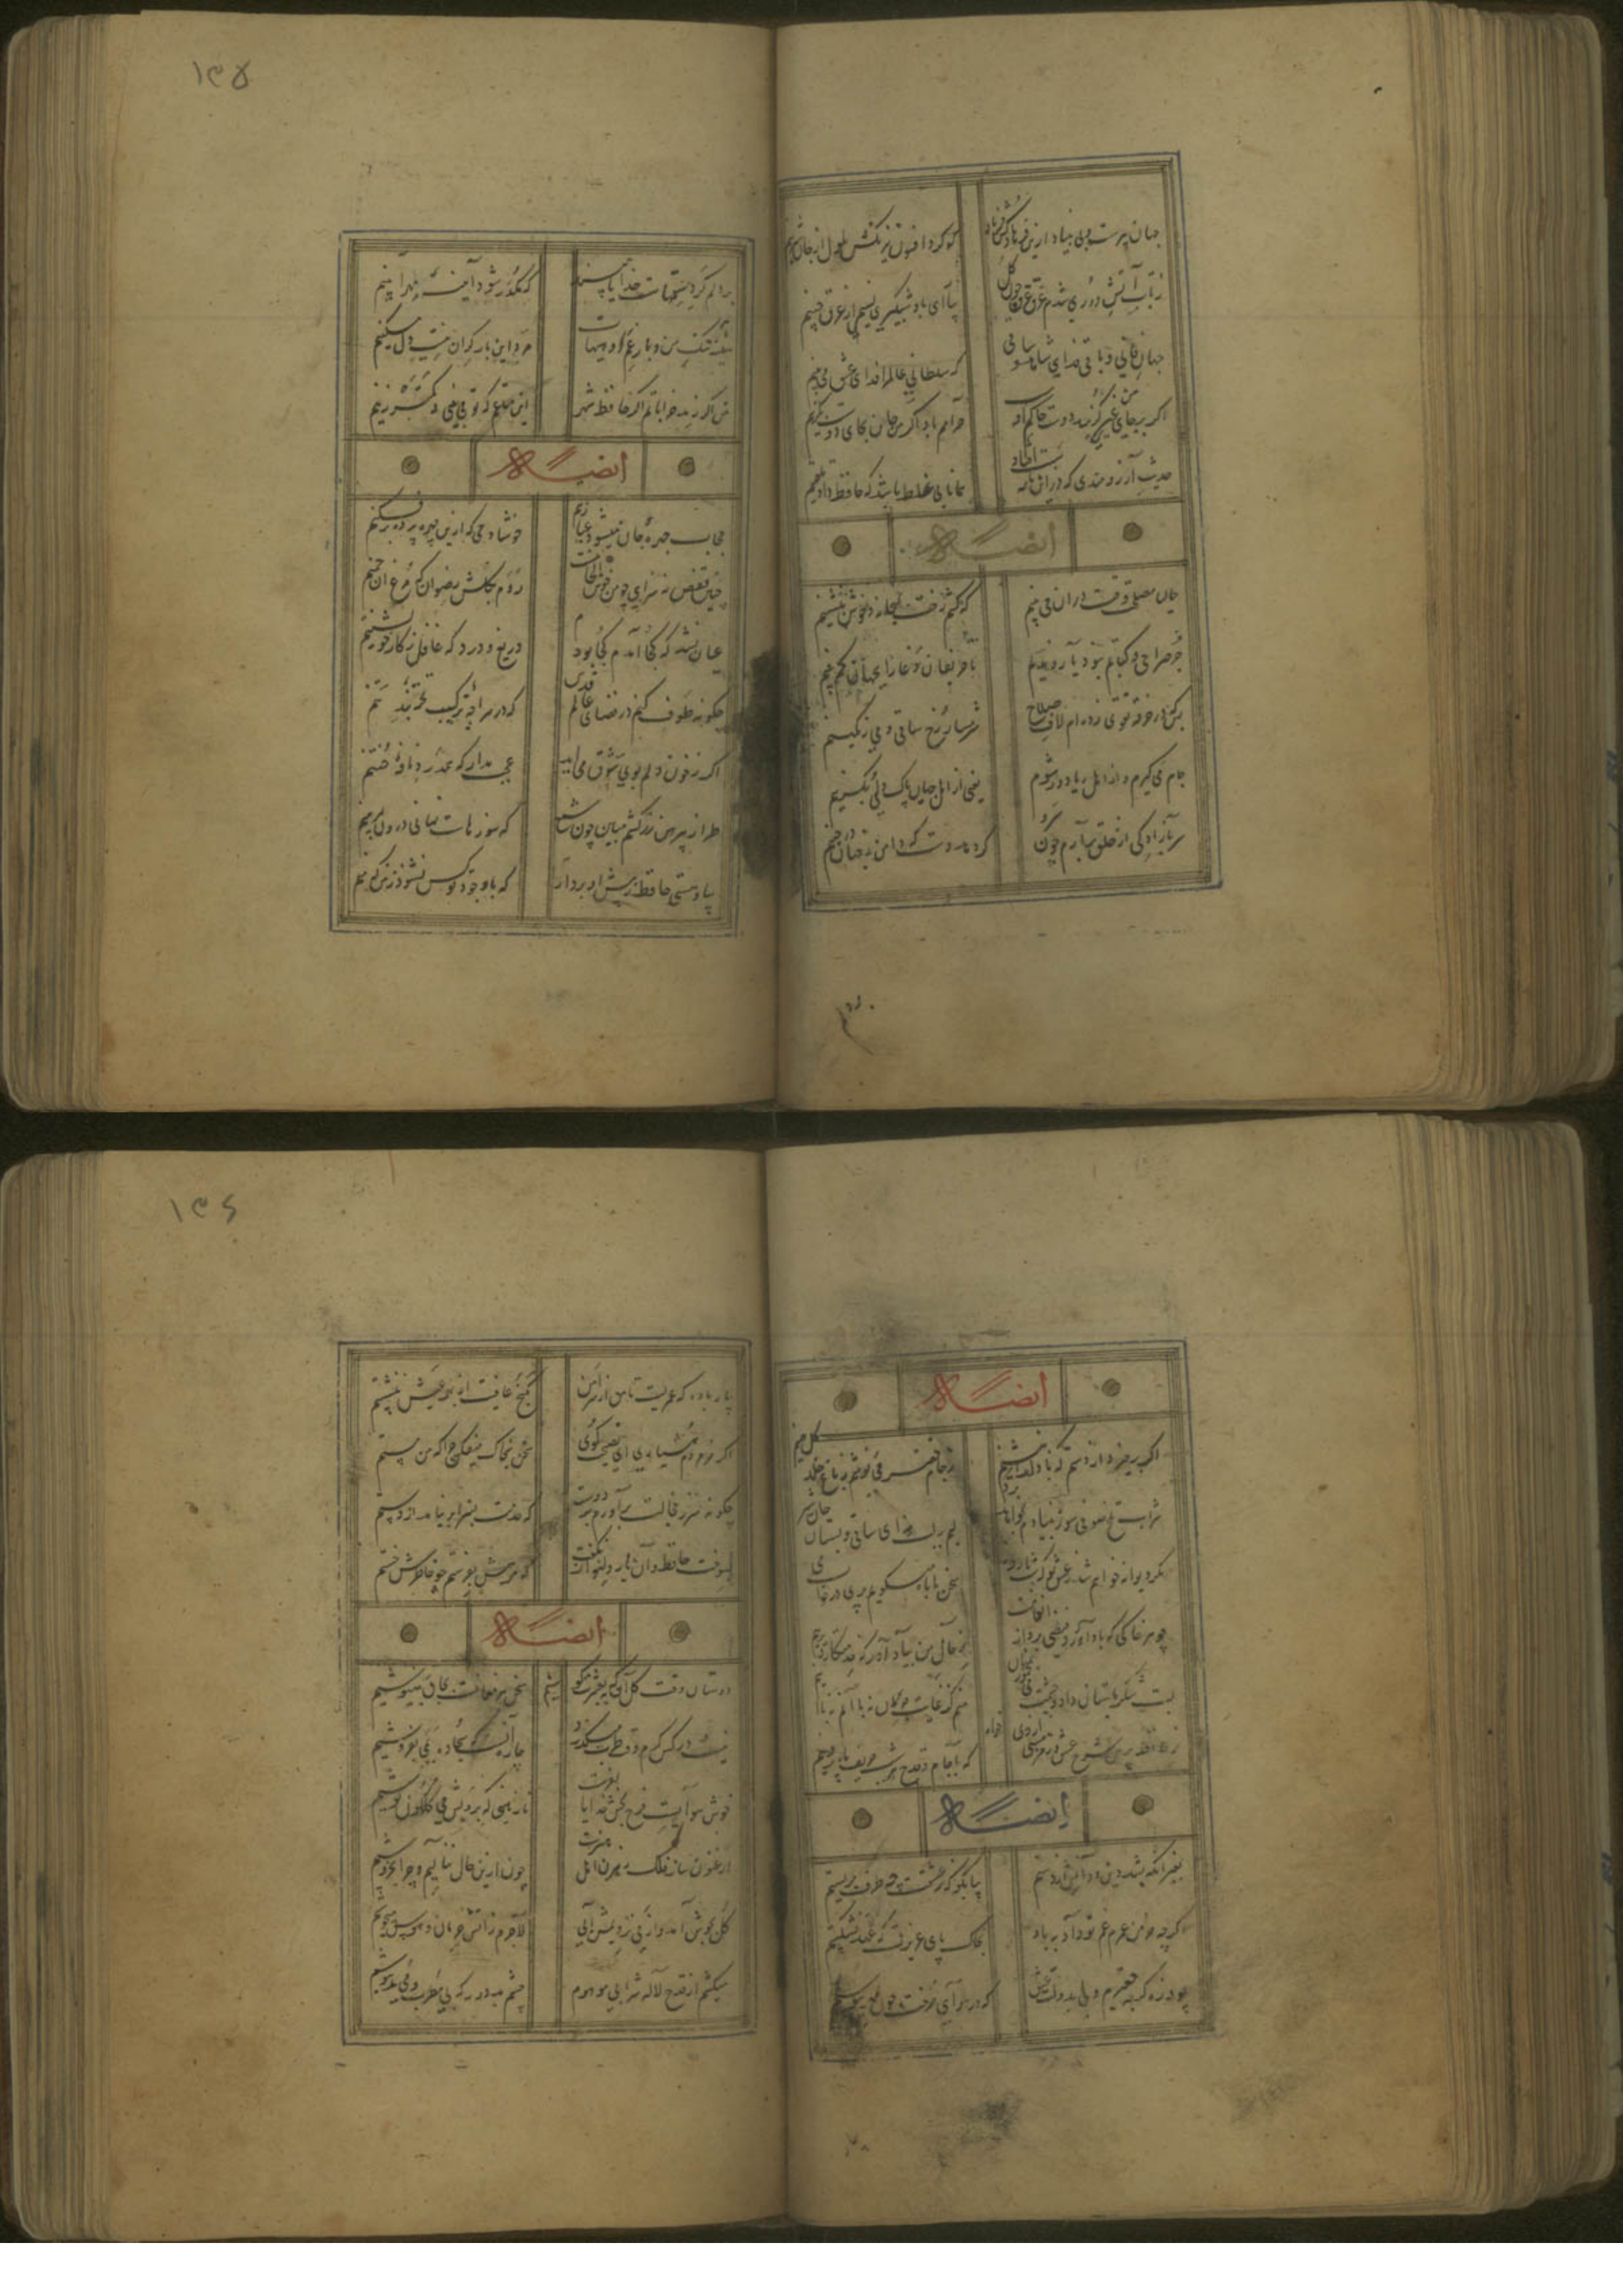 جهان پیرست و بی بنیاد ازین فرهاد کش فریاد
که کرد افسون و نیرنگش ملول از جان شیرینم
ز تاب آتش دوری شدم غرق عرق چون گل
بیا ای باد شبگیری نسیمی زان عرق چینم
جهان فانی و باقی فدای شاهد و ساقی
که سلطانی عالم را فدای عشق می بینم
اگر بر جای من غیری گزیند دوست حاکم اوست
حرامم باد اگر من جان بجای دوست بگزینم
حدیث آرزومندی که در این نامه ثبت افتاد
همانا بی غلط باشد که حافظ داد تلقینم
ایضاً له
حالیا مصلحت وقت در آن می بینم
که کشم رخت بمیخانه و خوش بنشینم
جز صراحی و کتابم نبود یار و ندیم
تا حریفان دغا را بجهان کم بینم
بس که در خرقه تقوی زده ام لاف صلاح
شرمسار رخ ساقی و می رنگینم
جام می گیرم و از اهل ریا دور شوم
یعنی از اهل جهان پاک دلی بگزینم
سر بآزادگی از خلق برآرم چون سرو
گر دهد دست که دامن ز جهان در چینم
۱۳۵
بر دلم گرد ستمهاست خدایا مپسند
که مکدر شود آیینه مهر آیینم
سینه تنگ من و بار غم او هیهات
مرد این بار گران نیست دل مسکینم
من اگر رند خراباتم اگر حافظ شهر
این متاعم که تو می بینی و کمتر زینم
ایضاً له
حجاب چهره جان میشود غبار تنم
خوشا دمی که ازین چهره پرده برفکنم
چنین قفس نه سزای چو من خوش الحانست
روم بگلشن رضوان که مرغ آن چمنم
عیان نشد که کجا آمدم کجا بودم
دریغ و درد که غافل ز کار خویشتنم
چگونه طوف کنم در فضای عالم قدس
که در سراچه ترکیب تخته بند تنم
اگر ز خون دلم بوی شوق می آید
عجب مدار که همدرد نافه ختنم
طراز پیرهن زرکشم مبین چون شمع
که سوزهاست نهانی درون پیرهنم
بیا و هستی حافظ ز پیش او بردار
که با وجود تو کس نشنود ز من که منم
ایضاً له
اگر برخیزد از دستم که با دلدار بنشینم
ز جام وصل می نوشم ز باغ خلد گل چینم
شراب تلخ صوفی سوز بنیادم بخواهد برد
لبم بر لب نه ای ساقی و بستان جان شیرینم
مگر دیوانه خواهم شد ز عشق تو که شب تا روز
سخن با ماه میگویم پری در خواب
چو هر خاکی که باد آورد فیضی برد از انعامت
ز حال من بیاد آور که خدمتکار دیرینم
لبت شکر بمستان داد و چشمت می بمیخواران
منم کز غایت حرمان نه با آنم نه با اینم
که با جام و قدح هر شب حریف ماه و پروینم
ایضاً له
بغیر آنکه بشد دین و دانش از دستم
بیا بگو که ز عشقت چه طرف بربستم
اگرچه خرمن عمرم غم تو داد بباد
بخاک پای عزیزت که عهد نشکستم
چو ذره گرچه حقیرم ولی بدولت عشق
که در هوای رخت چون بمهر پیوستم
۱۳۶
بیار باده که عمریست تا من از سر امن
بکنج عافیت از بهر عیش ننشستم
اگر ز مردم هشیاری ای نصیحت گوی
سخن بخاک میفکن چرا که من مستم
چگونه سر ز خجالت برآورم بر دوست
که خدمت بسزا بر نیامد از دستم
بسوخت حافظ و آن یار دلنواز نگفت
که مرهمی بفرستم چو خاطرش خستم
ایضاً له
دوستان وقت گل آن به که بعشرت کوشیم
سخن پیر مغانست بجان بنیوشیم
نیست در کس کرم و وقت طرب میگذرد
چاره آنست که سجاده بمی بفروشیم
خوش هواییست فرح بخش خدایا بفرست
نازنینی که برویش می گلگون نوشیم
ارغنون ساز فلک رهزن اهل هنرست
چون ازین حال ننالیم و چرا نخروشیم
گل بجوش آمد و از می نزدیمش آبی
لاجرم ز آتش حرمان و هوس میجوشیم
میکشم از قدح لاله شرابی موهوم
چشم بد دور که بی مطرب و می مدهوشیم